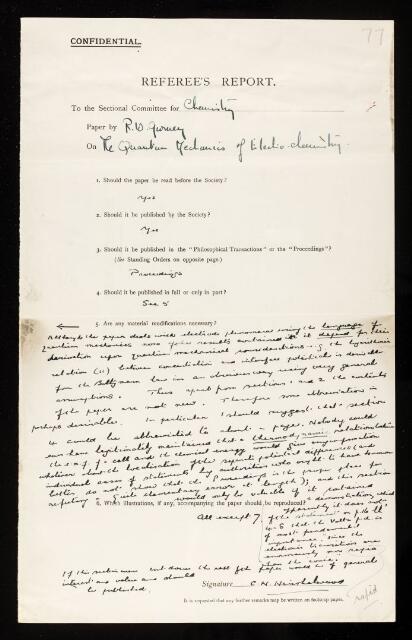 77
CONFIDENTIAL.
REFEREE'S REPORT.
To the Sectional Committee for Chemistry
Paper by R.W. Gurney
On The Quantum Mechanics of Electro-chemistry.
1. Should the paper be read before the Society?
Yes
2. Should it be published by the Society?
Yes
3. Should it be published in the "Philosophical Transactions" or the "Proceedings"?
(See Standing Orders on opposite page.)
Proceedings
4. Should it be published in full or only in part?
See 5
5. Are any material modifications necessary?
Although the paper deals with electrode phenomena using the language of
quantum mechanics, none of the results contained in it depend for their
derivation upon quantum mechanical considerations e.g. the logarithmic
relation (11) between concentration and interface potential is derivable
from the Boltzmann law in an obvious way using very general
assumptions. Thus apart from sections 1 and 2 the contents
of the paper are not new. Therefore some abbreviation is
perhaps desirable. In particular I should suggest that section
could be abbreviated to about a page. Nobody could
ever have legitimately maintained that a thermodynamic relationship
the e.m.f. of a cell and the chemical energy would give any information
whatever about the localisation of the separate potential differences (and
individual cases of statements by authorities who ought to have known
better do not show that the Proceedings is the proper place for
refuting such elementary errors at length); and this section
would only be valuable if it contained
6. Which illustrations, if any, accompanying the paper should be reproduced?
a demonstration, which
apparently it does not,
All except 7.
of the statement on
that the Volta p.d. is
of most fundamental
importance, since the
electronic transitions are
enormously more rapid
than the ionic.
If this section were cut down the rest of the paper would be of general
interest and value and should
be published.
Signature C. N. Hinshelwood
rapid
It is requested that any further remarks may be written on foolscap pages.